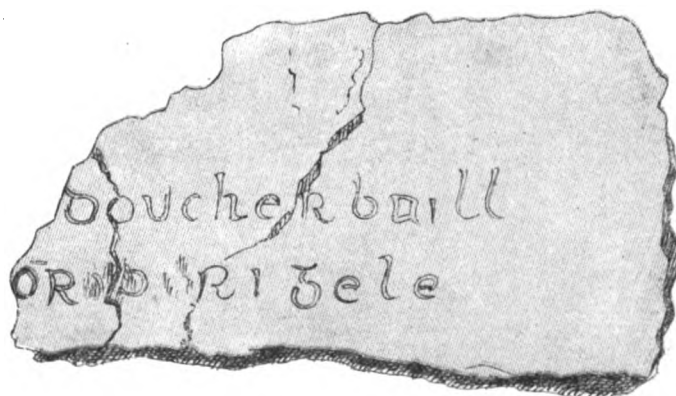 doucheRbaill
ŌR RIgele